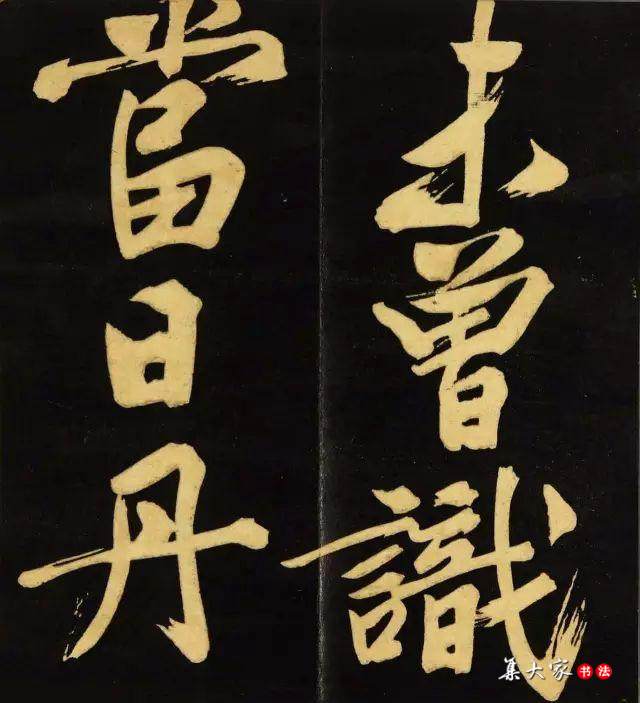 未曾識
當日丹
集大家书法